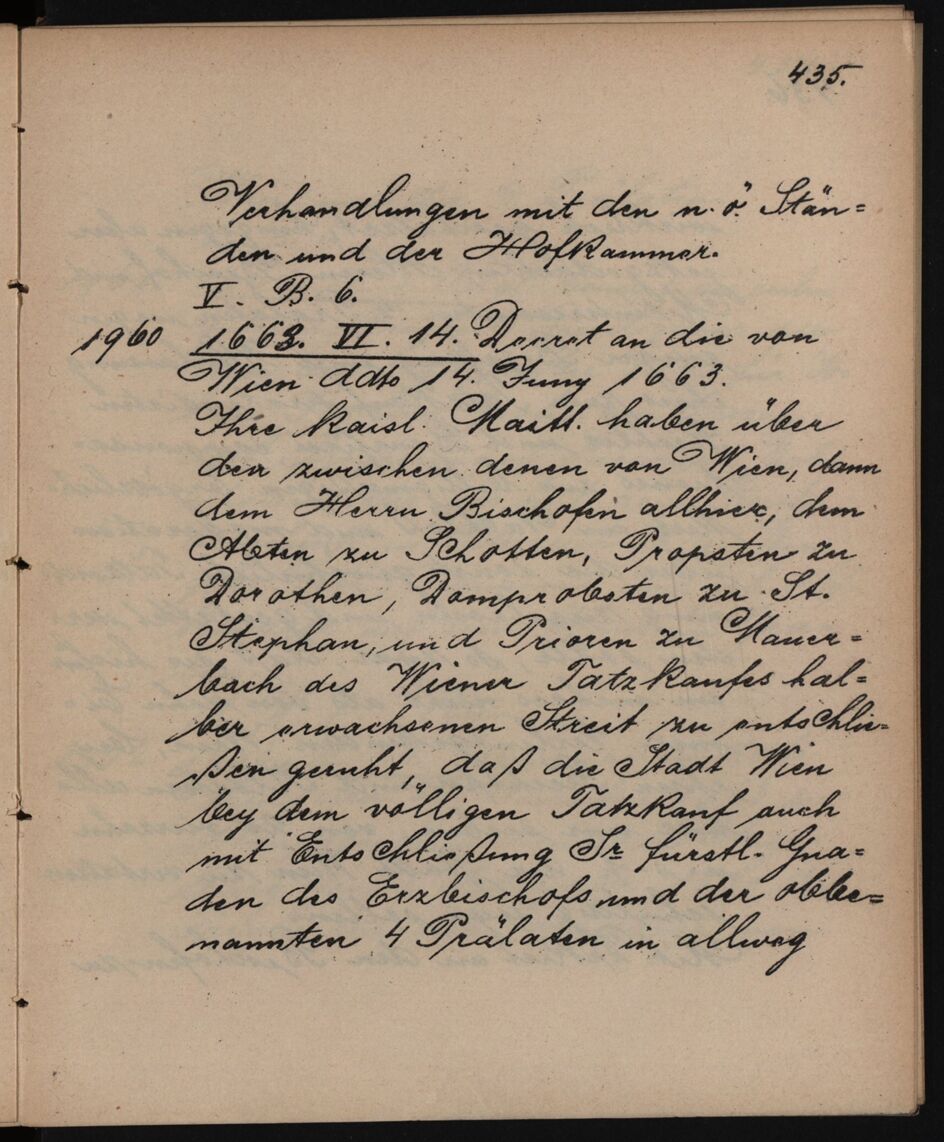 435.
Verhandlungen mit den n. ö. Stän=
den und der Hofkammer.
V. B. 6.
1960 1663. VI. 14. Decret an die von
Wien ddto 14. Juny 1663.
Ihre kaisl. Maitt. haben über
den zwischen denen von Wien, dann
dem Herrn Bischofen allhier, dem
Abten zu Schotten, Propsten zu
Dorothen, Domprobsten zu St.
Stephan, und Prioren zu Mauer=
bach des Wiener Tatzkaufes hal=
ber erwachsenen Streit zu entschlie=
ßen geruht, daß die Stadt Wien
bey dem völligen Tatzkauf auch
mit Entschließung Sr fürstl. Gna=
den des Erzbischofs und der obbe=
nannten 4 Prälaten in allweg